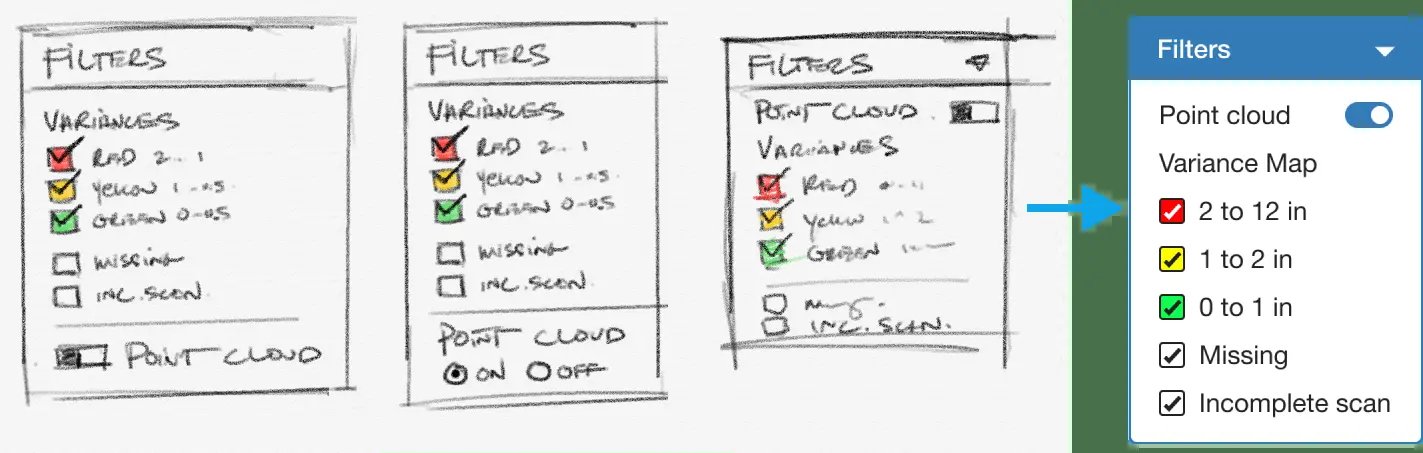 FILTERS
VARIANCES
RED 2.. 1
YELLOW 1 - 0.5
GREEN 0-0.5
MISSING
INC. SCAN
POINT CLOUD
FILTERS
VARIANCES
RED 2.. 1
YELLOW 1 - 0.5
GREEN 0-0.5
MISSING
INC. SCAN
POINT CLOUD
ON OFF
FILTERS
POINT CLOUD
VARIANCES
RED
YELLOW
GREEN
INC. SCAN.
Filters
Point cloud
Variance Map
2 to 12 in
1 to 2 in
0 to 1 in
Missing
Incomplete scan